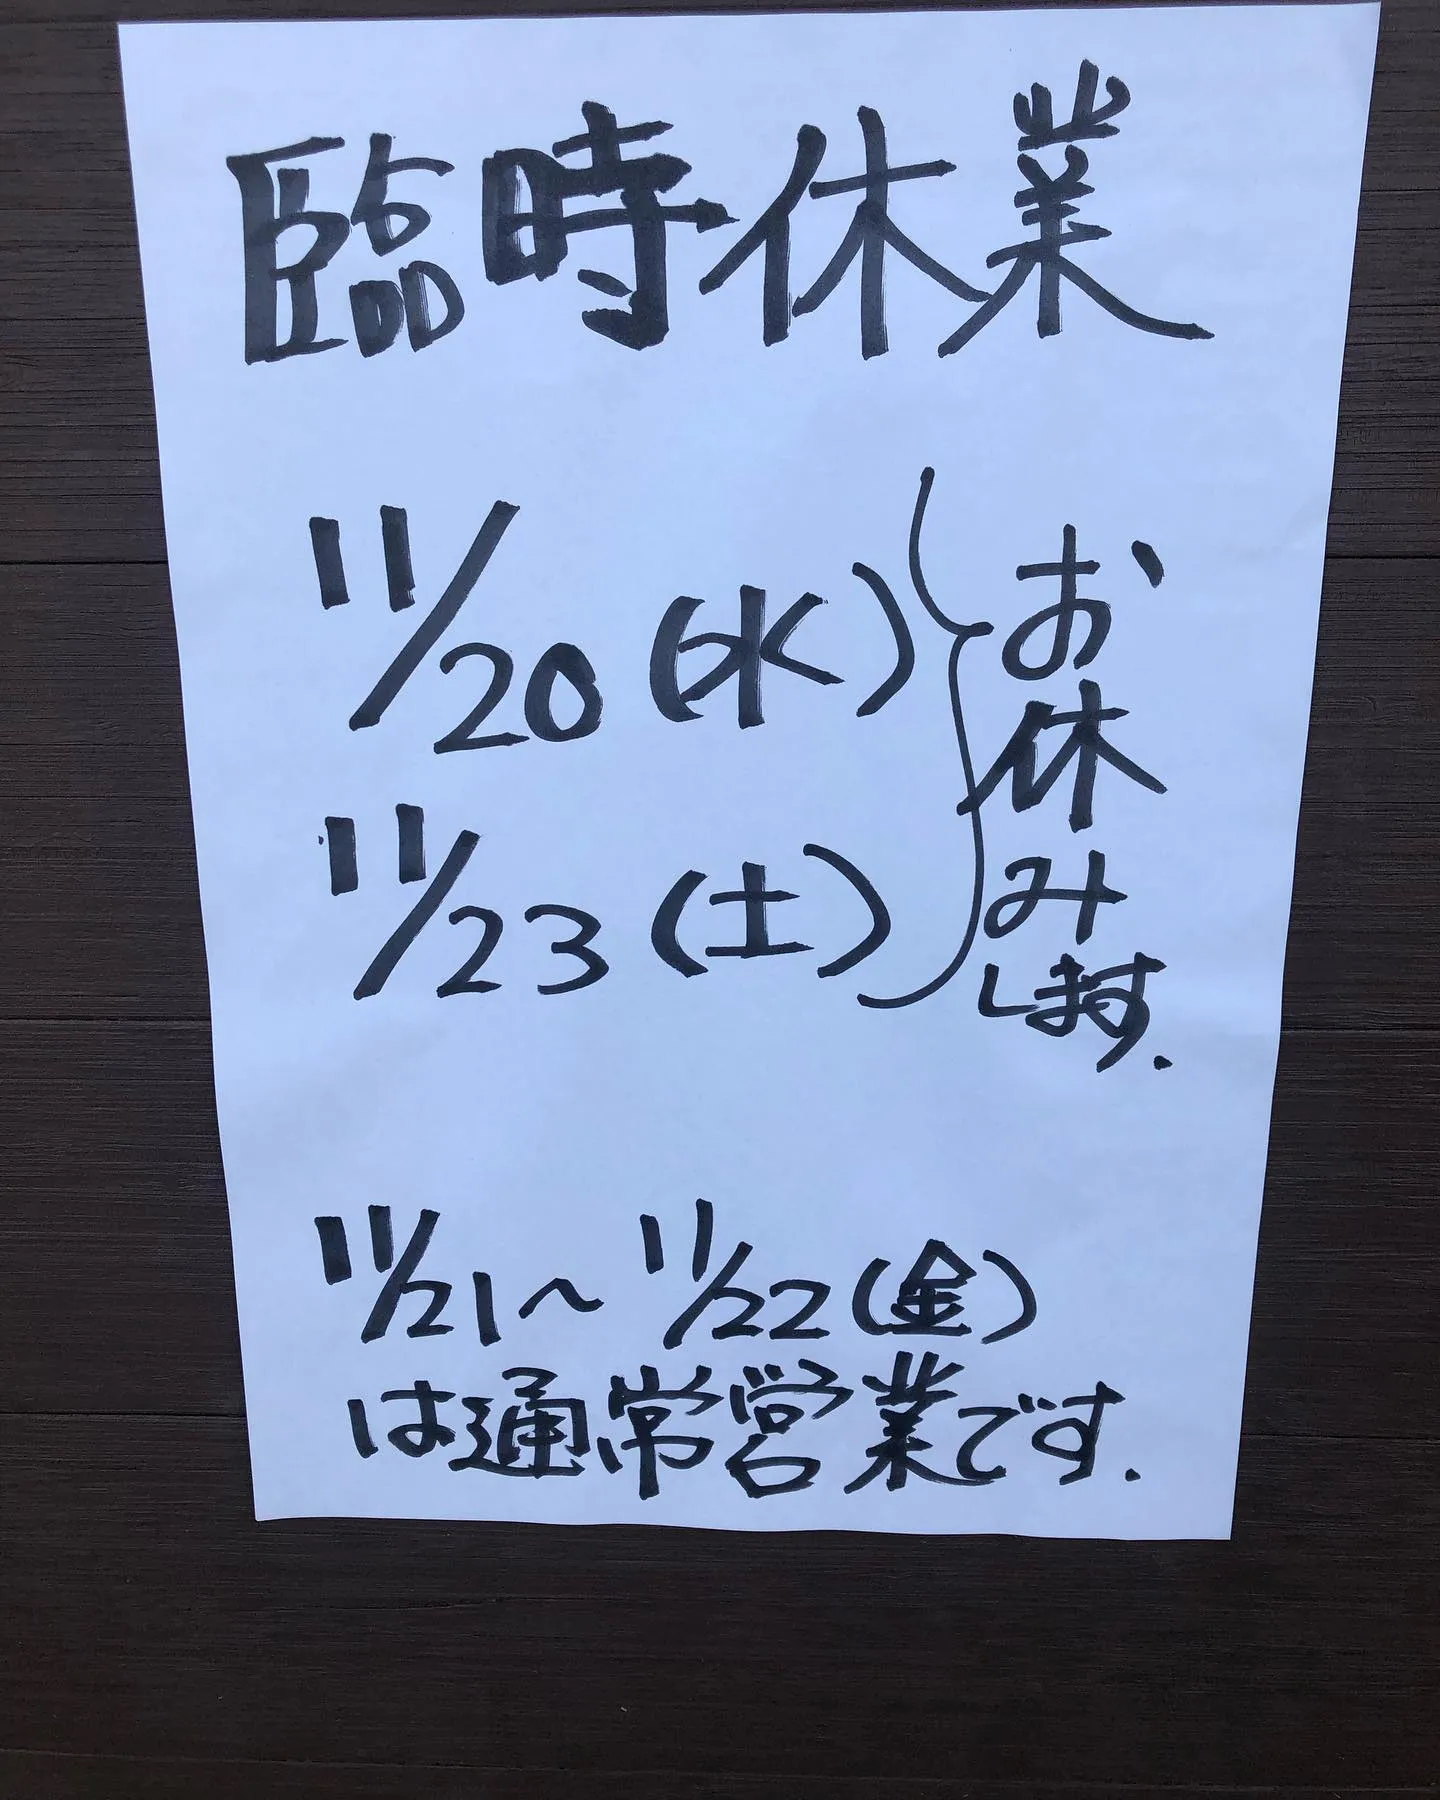 臨時休業
11/20(水)
11/23(土)
お休みします.
11/21〜11/22(金)
は通常営業です.